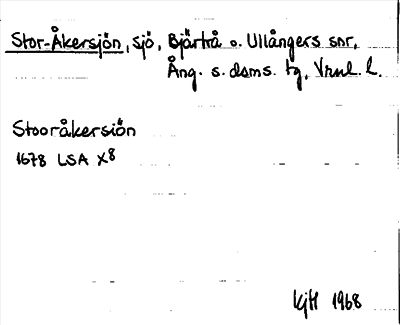 Stor-Åkersjön, sjö, Bjärtrå o. Ullångers snr,
Ång. s. doms. tg, Vrnl. l.
Stooråkersiön
1678 LSA X8
KjH 1968